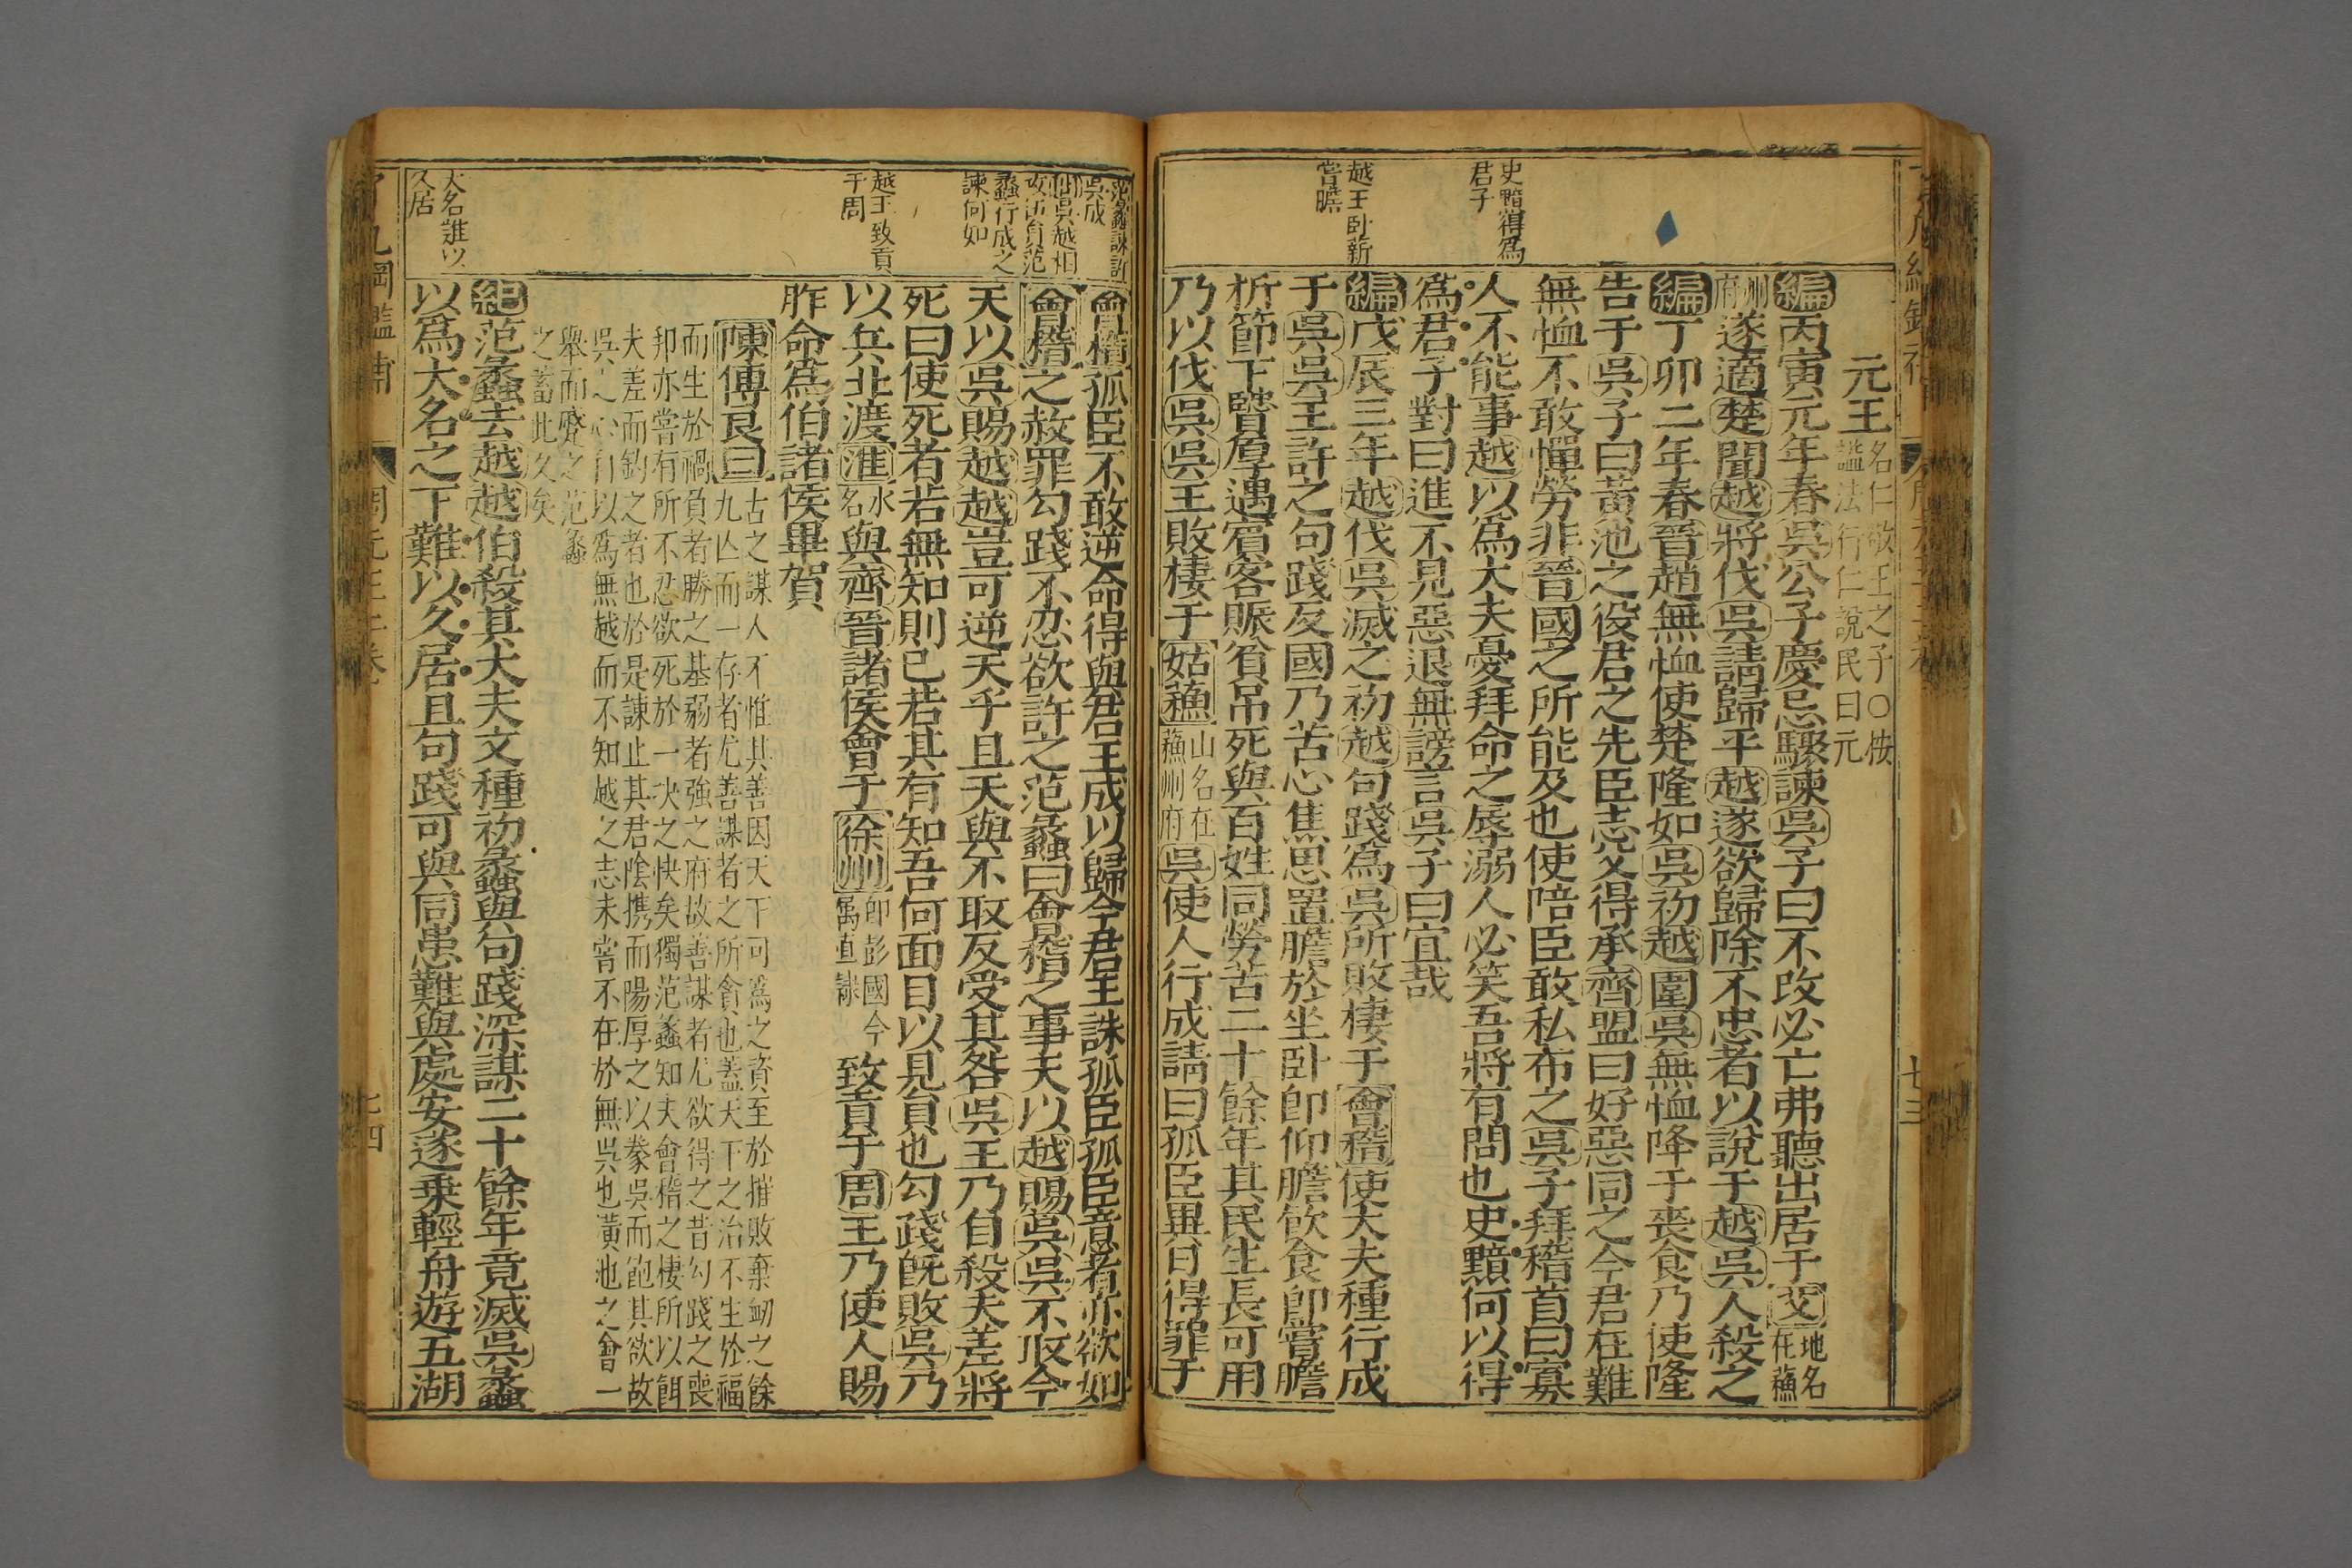 史黯得爲
君子
越王卧薪
嘗膽
元王名仁敬王之子○按
謚法行仁說民曰元
編丙寅元年春吳公子慶忌驟諫吳子曰不改必亡弗聽出居于艾地名在蘇
州府遂適楚聞越將伐吳請歸平越遂欲歸除不忠者以說于越吳人殺之
編丁卯二年春晉趙無恤使楚隆如吳初越圍吳無恤降于喪食乃使隆
告于吳子曰黃池之役君之先臣志父得承齊盟曰好惡同之今君在難
無恤不敢憚勞非晉國之所能及也使陪臣敢私布之吳子拜稽首曰寡
人不能事越以爲大夫憂拜命之辱溺人必笑吾將有問也史黯何以得
爲君子對曰進不見惡退無謗言吳子曰宜哉
編戊辰三年越伐吳滅之初越句踐爲吳所敗棲于會稽使大夫種行成
于吳吳王許之句踐反國乃苦心焦思置膽於坐卧卽仰膽飮食卽嘗膽
折節下賢厚遇賓客賑貧吊死與百姓同勞苦二十餘年其民生長可用
乃以伐吳吳王敗棲于姑蘇山名在蘇州府吳使人行成請曰孤臣異日得罪于
七三
范蠡諫許
吳成
蠡行成之
諫何如
越王致貢
于周
大名難以
久居
會稽孤臣不敢逆命得與君王成以歸今君王誅孤臣孤臣意者亦欲如
會稽之赦罪勾踐不忍欲許之范蠡曰會稽之事夫以越賜吳吳不取今
天以吳賜越越豈可逆天乎且天與不取反受其咎吳王乃自殺夫差將
死曰使死者若無知則已若其有知吾何面目以見員也勾踐旣敗吳乃
以兵北渡淮水名與齊晉諸侯會于徐州卽彭國今屬直隸致貢于周王乃使人賜
胙命爲伯諸侯畢賀
陳傅良曰古之謀人不惟其善因天下可爲之資至於摧敗棄衂之餘
九亾而一存者尤善謀者之所貪也蓋天下之治不生於福
而生於禍負者勝之基弱者強之府故善謀者尤欲得之昔勾踐之喪
邦亦嘗有所不忍欲死於一決之快矣獨范蠡知夫會稽之棲所以餌
夫差而釣之者也於是諫止其君陰携而陽厚之以豢吳而飽其欲故
吳之心自以爲無越而不知越之志未嘗不在於無吳也潢池之會一
舉而斃之范蠡
之蓄此久矣
紀范蠡去越越伯殺其大夫文種初蠡與句踐深謀二十餘年竟滅吳蠡
以爲大名之下難以久居且句踐可與同患難與處安遂乗輕舟遊五湖
周元王二卷